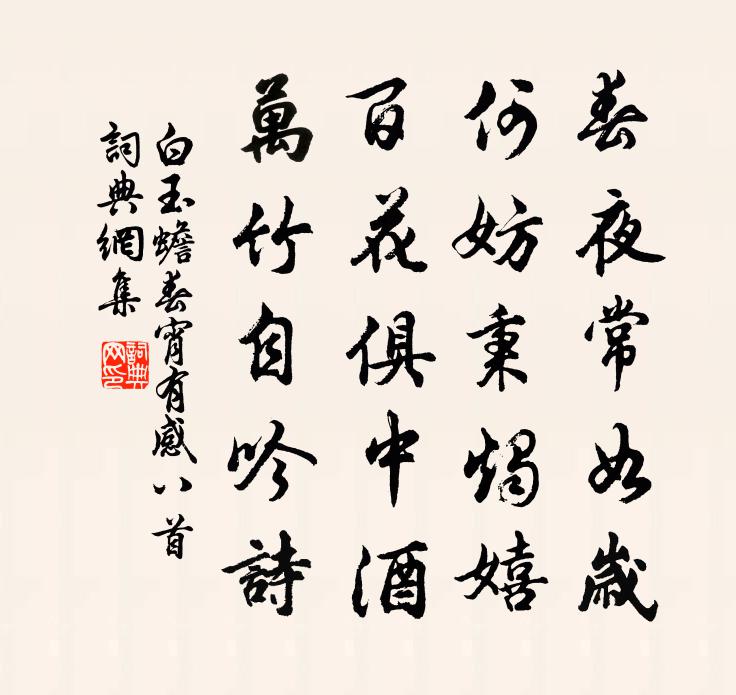 春夜常如歲
何妨秉燭嬉
百花俱中酒
萬竹自吟詩
白玉蟾春宵有感八首
詞典網集
詞典
网印